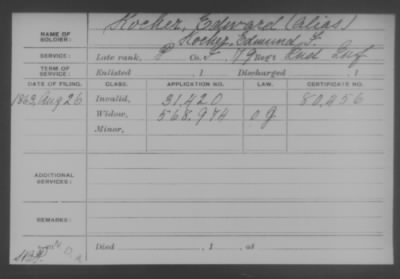 NAME OF SOLDIER: Kocher, Edward (Alias)
Kocher, Edmund F.
SERVICE: Late rank, P Co. F, 79 Reg't Ind Inf
TERM OF SERVICE: Enlisted , 1 Discharged , 1
DATE OF FILING. CLASS. APPLICATION NO. LAW. CERTIFICATE NO.
1863, Aug 26 Invalid, 31.420 80.456
Widow, 568.974 O.G.
Minor,
ADDITIONAL SERVICES:
REMARKS:
Died , 1 , at